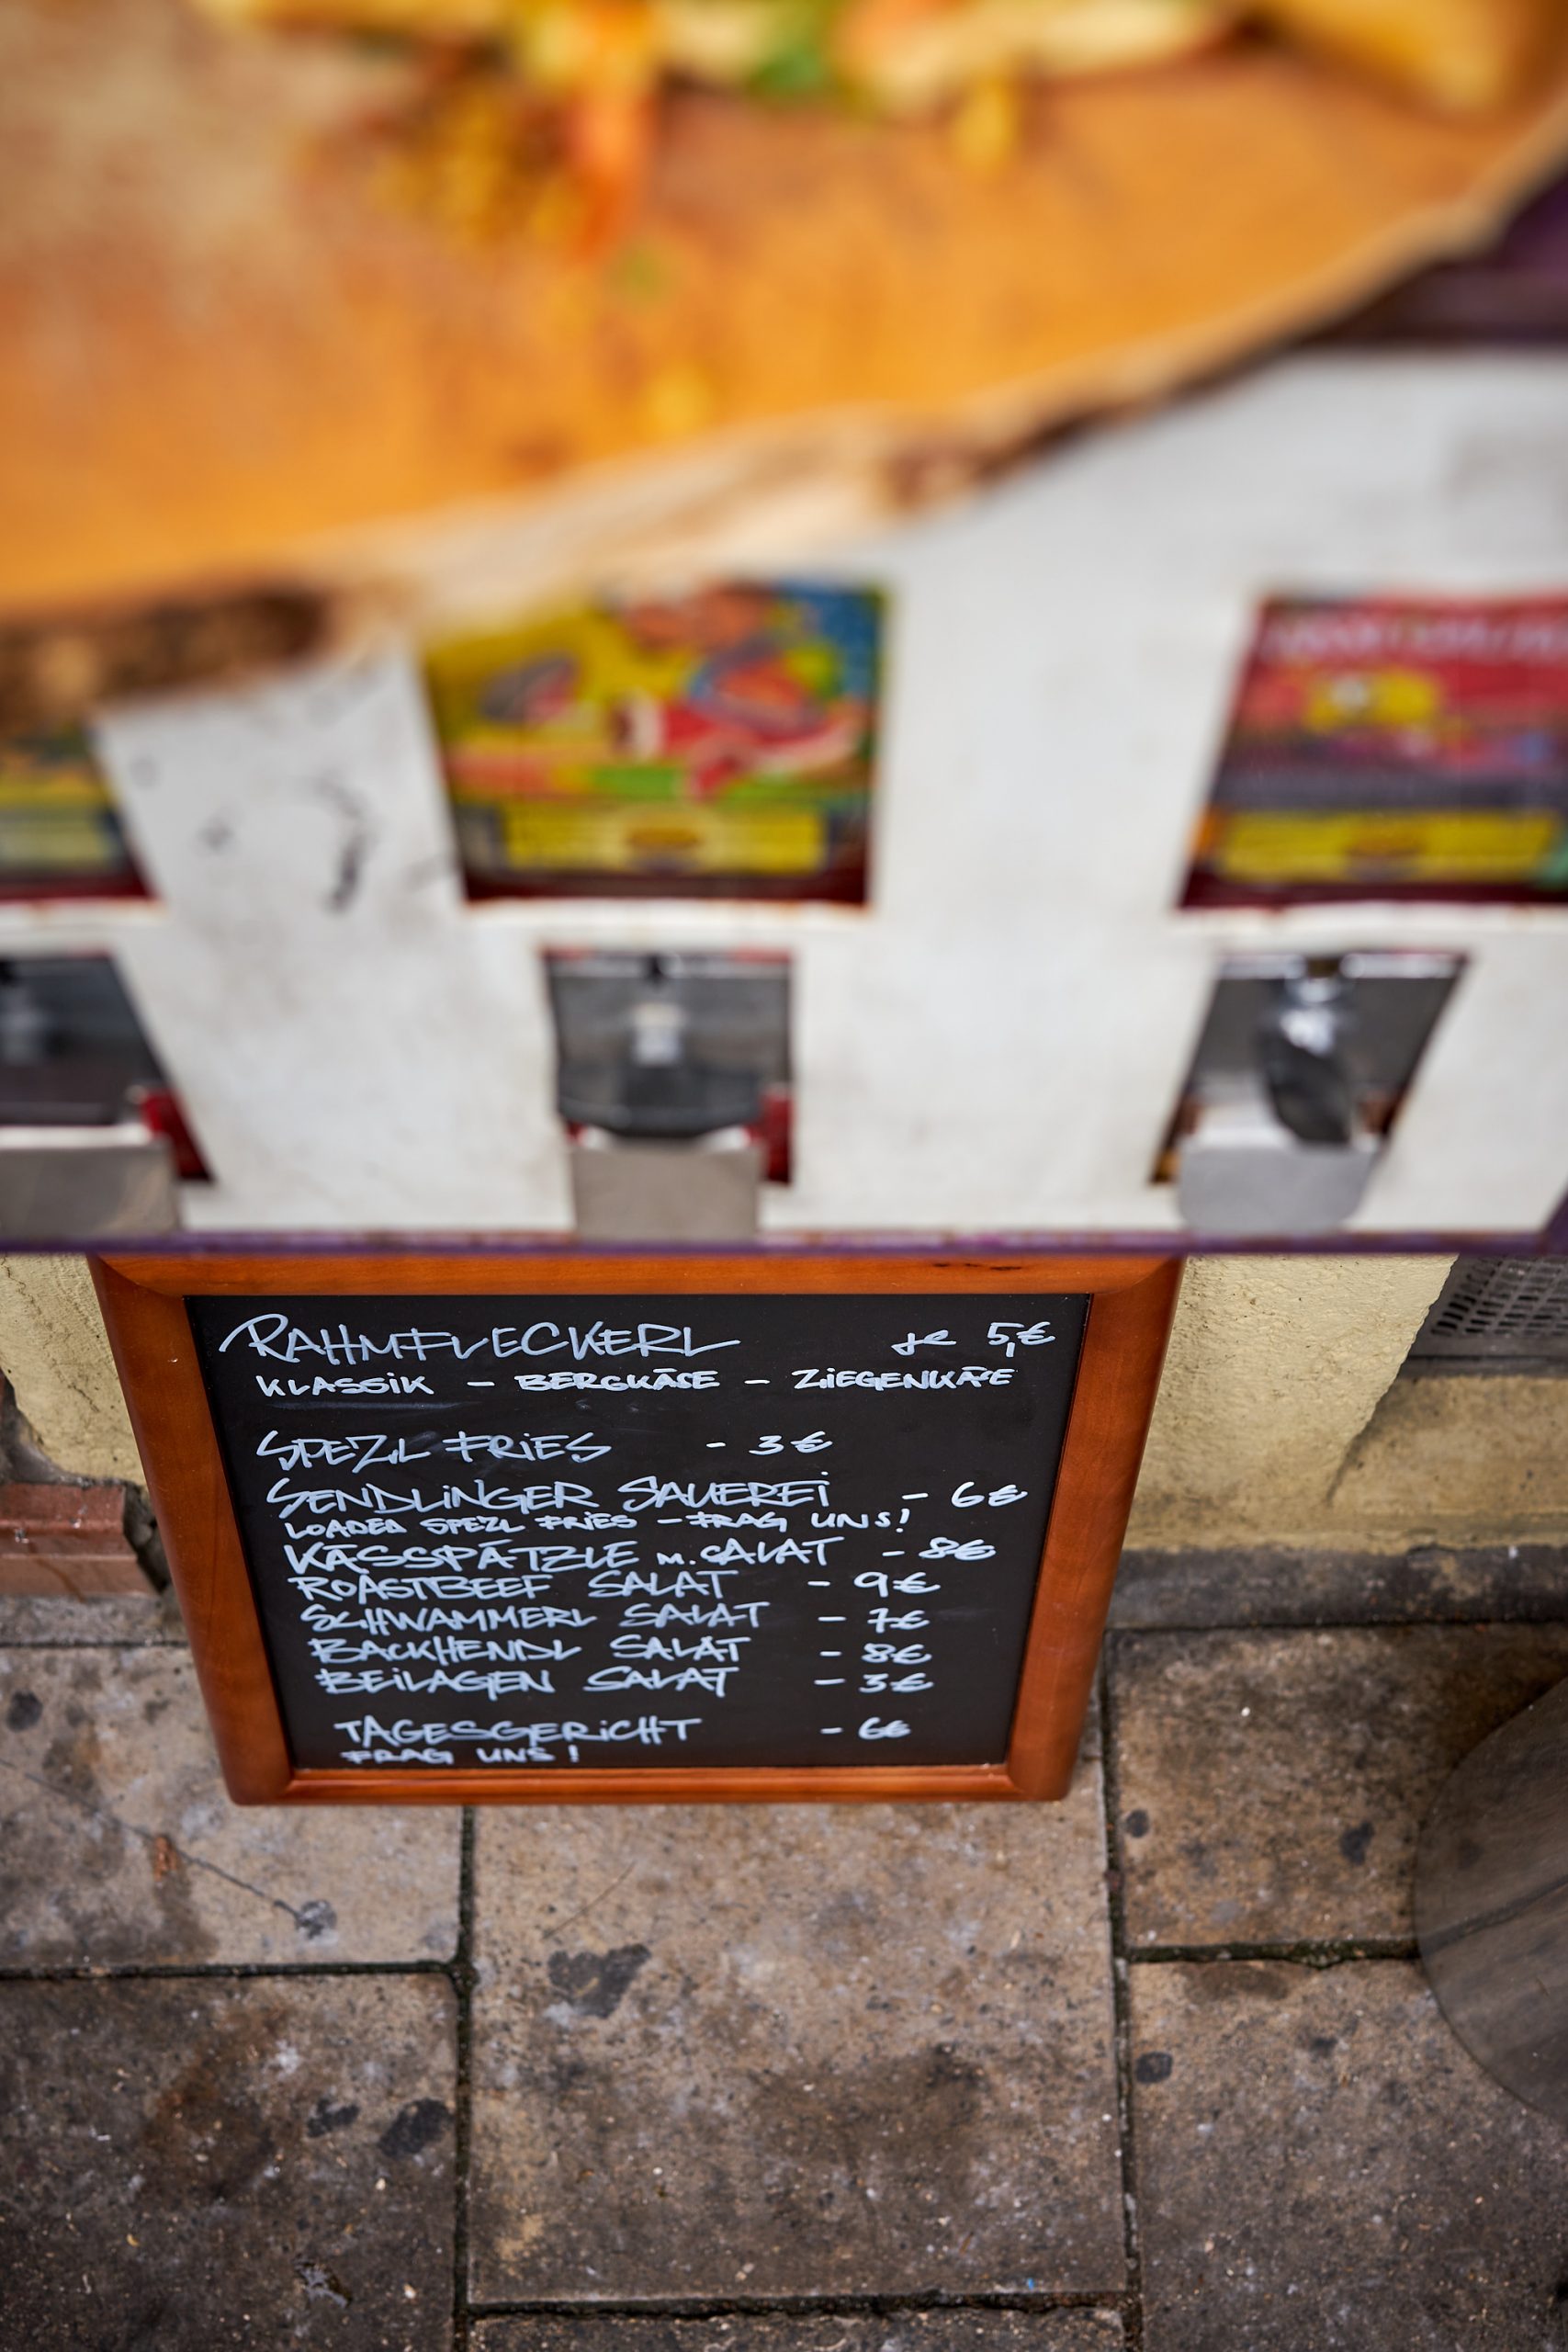 RAHMFLECKERL je 5,€
KLASSIK - BERGKÄSE - ZIEGENKÄSE
SPEZL FRIES - 3€
SENDLINGER SAUEREI - 6€
LOADED SPEZL FRIES - FRAG UNS!
KÄSSPÄTZLE M. SALAT - 8€
ROASTBEEF SALAT - 9€
SCHWAMMERL SALAT - 7€
BACKHENDL SALAT - 8€
BEILAGEN SALAT - 3€
TAGESGERICHT - 6€
FRAG UNS!